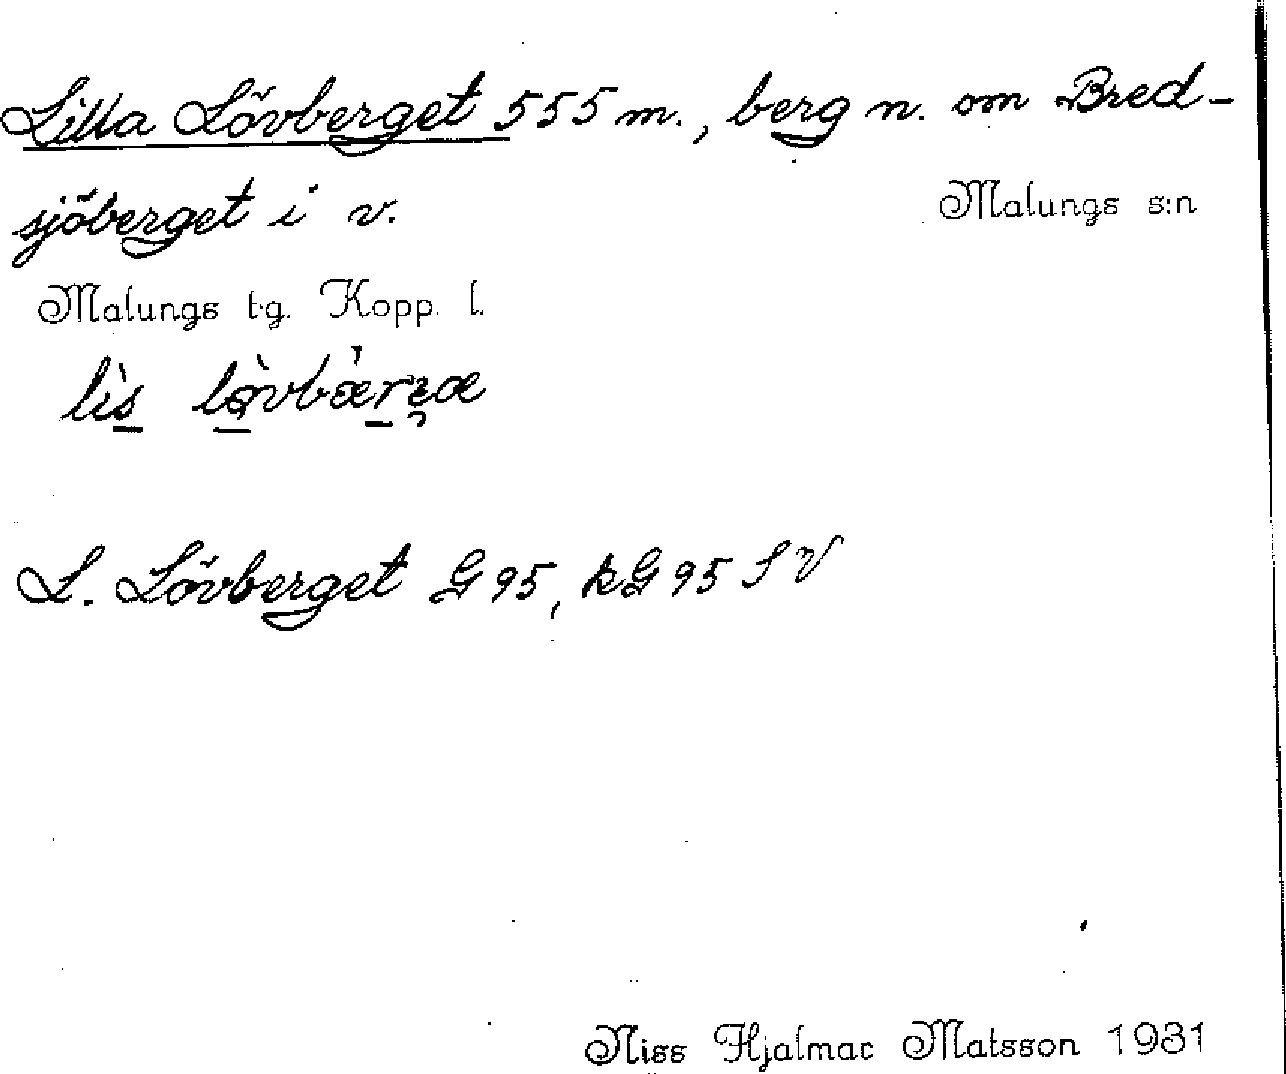 Lilla Lövberget 555 m., berg n. om Bred-
sjöberget i v. Malungs s:n
Malungs tg. Kopp. l.
L. Lövberget G 95, kG 95 SV
Niss Hjalmar Matsson 1931